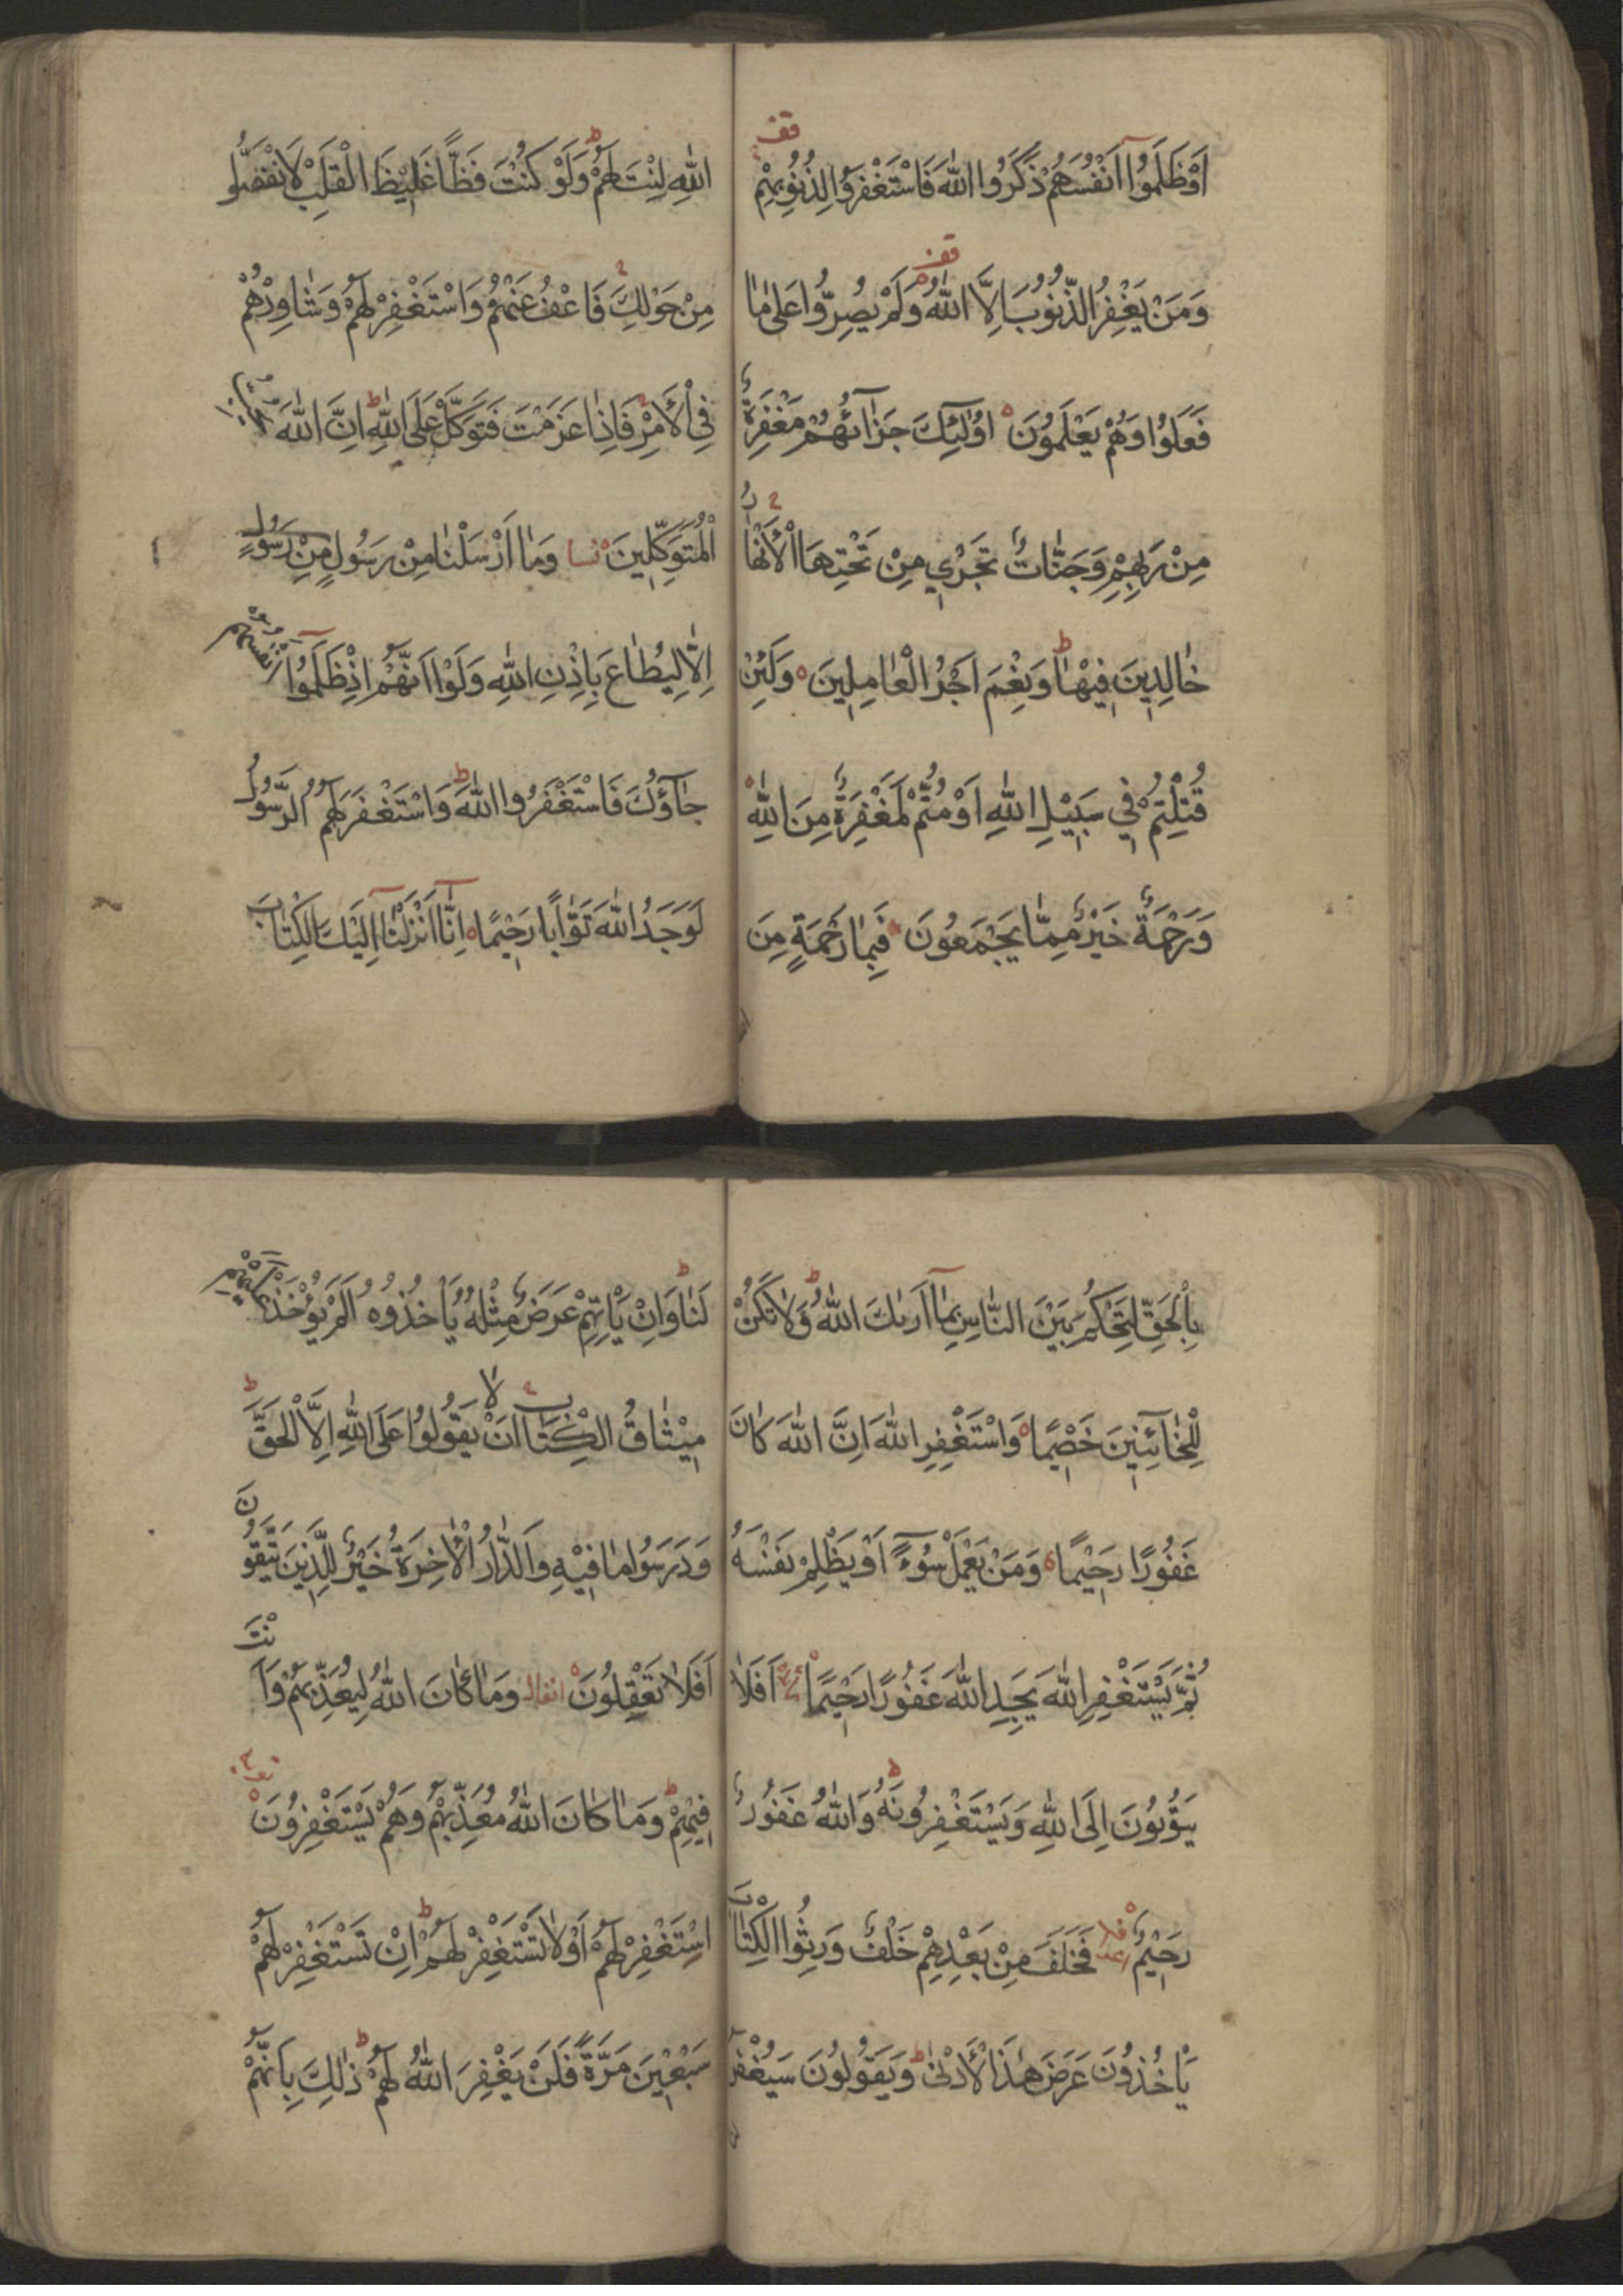 اَوْ ظَلَمُوا اَنْفُسَهُمْ ذَكَرُوا اللّٰهَ فَاسْتَغْفَرُوا لِذُنُوبِهِمْ قف
وَمَنْ يَغْفِرُ الذُّنُوبَ اِلَّا اللّٰهُ قف وَلَمْ يُصِرُّوا عَلٰى مَا
فَعَلُوا وَهُمْ يَعْلَمُونَ اُولٰئِكَ جَزَاؤُهُمْ مَغْفِرَةٌ
مِنْ رَبِّهِمْ وَجَنَّاتٌ تَجْرِي مِنْ تَحْتِهَا الْاَنْهَارُ
خَالِدِينَ فِيهَا ط وَنِعْمَ اَجْرُ الْعَامِلِينَ وَلَئِنْ
قُتِلْتُمْ فِي سَبِيلِ اللّٰهِ اَوْ مُتُّمْ لَمَغْفِرَةٌ مِنَ اللّٰهِ
وَرَحْمَةٌ خَيْرٌ مِمَّا يَجْمَعُونَ فَبِمَا رَحْمَةٍ مِنَ
اللّٰهِ لِنْتَ لَهُمْ ط وَلَوْ كُنْتَ فَظًّا غَلِيظَ الْقَلْبِ لَانْفَضُّوا
مِنْ حَوْلِكَ فَاعْفُ عَنْهُمْ وَاسْتَغْفِرْ لَهُمْ وَشَاوِرْهُمْ
فِي الْاَمْرِ فَاِذَا عَزَمْتَ فَتَوَكَّلْ عَلَى اللّٰهِ ط اِنَّ اللّٰهَ يُحِبُّ
الْمُتَوَكِّلِينَ نسا وَمَا اَرْسَلْنَا مِنْ رَسُولٍ مِنْ رَسُولٍ
اِلَّا لِيُطَاعَ بِاِذْنِ اللّٰهِ وَلَوْ اَنَّهُمْ اِذْ ظَلَمُوا اَنْفُسَهُمْ
جَاؤُكَ فَاسْتَغْفَرُوا اللّٰهَ ط وَاسْتَغْفَرَ لَهُمُ الرَّسُولُ
لَوَجَدُوا اللّٰهَ تَوَّابًا رَحِيمًا اِنَّا اَنْزَلْنَا اِلَيْكَ الْكِتَابَ
بِالْحَقِّ لِتَحْكُمَ بَيْنَ النَّاسِ بِمَا اَرٰيكَ اللّٰهُ ط وَلَا تَكُنْ
لِلْخَائِنِينَ خَصِيمًا وَاسْتَغْفِرِ اللّٰهَ اِنَّ اللّٰهَ كَانَ
غَفُورًا رَحِيمًا وَمَنْ يَعْمَلْ سُوءً اَوْ يَظْلِمْ نَفْسَهُ
ثُمَّ يَسْتَغْفِرِ اللّٰهَ يَجِدِ اللّٰهَ غَفُورًا رَحِيمًا اَفَلَا
يَتُوبُونَ اِلَى اللّٰهِ وَيَسْتَغْفِرُونَهُ ط وَاللّٰهُ غَفُورٌ
رَحِيمٌ فَخَلَفَ مِنْ بَعْدِهِمْ خَلْفٌ وَرِثُوا الْكِتَابَ
يَاْخُذُونَ عَرَضَ هٰذَا الْاَدْنٰى ط وَيَقُولُونَ سَيُغْفَرُ
لَنَا ط وَاِنْ يَاْتِهِمْ عَرَضٌ مِثْلُهُ يَاْخُذُوهُ اَلَمْ يُؤْخَذْ عَلَيْهِمْ
مِيثَاقُ الْكِتَابِ اَنْ لَا يَقُولُوا عَلَى اللّٰهِ اِلَّا الْحَقَّ ط
وَدَرَسُوا مَا فِيهِ وَالدَّارُ الْاٰخِرَةُ خَيْرٌ لِلَّذِينَ يَتَّقُونَ
اَفَلَا تَعْقِلُونَ انفال وَمَا كَانَ اللّٰهُ لِيُعَذِّبَهُمْ وَاَنْتَ
فِيهِمْ ط وَمَا كَانَ اللّٰهُ مُعَذِّبَهُمْ وَهُمْ يَسْتَغْفِرُونَ
اِسْتَغْفِرْ لَهُمْ اَوْ لَا تَسْتَغْفِرْ لَهُمْ ط اِنْ تَسْتَغْفِرْ لَهُمْ
سَبْعِينَ مَرَّةً فَلَنْ يَغْفِرَ اللّٰهُ لَهُمْ ط ذٰلِكَ بِاَنَّهُمْ